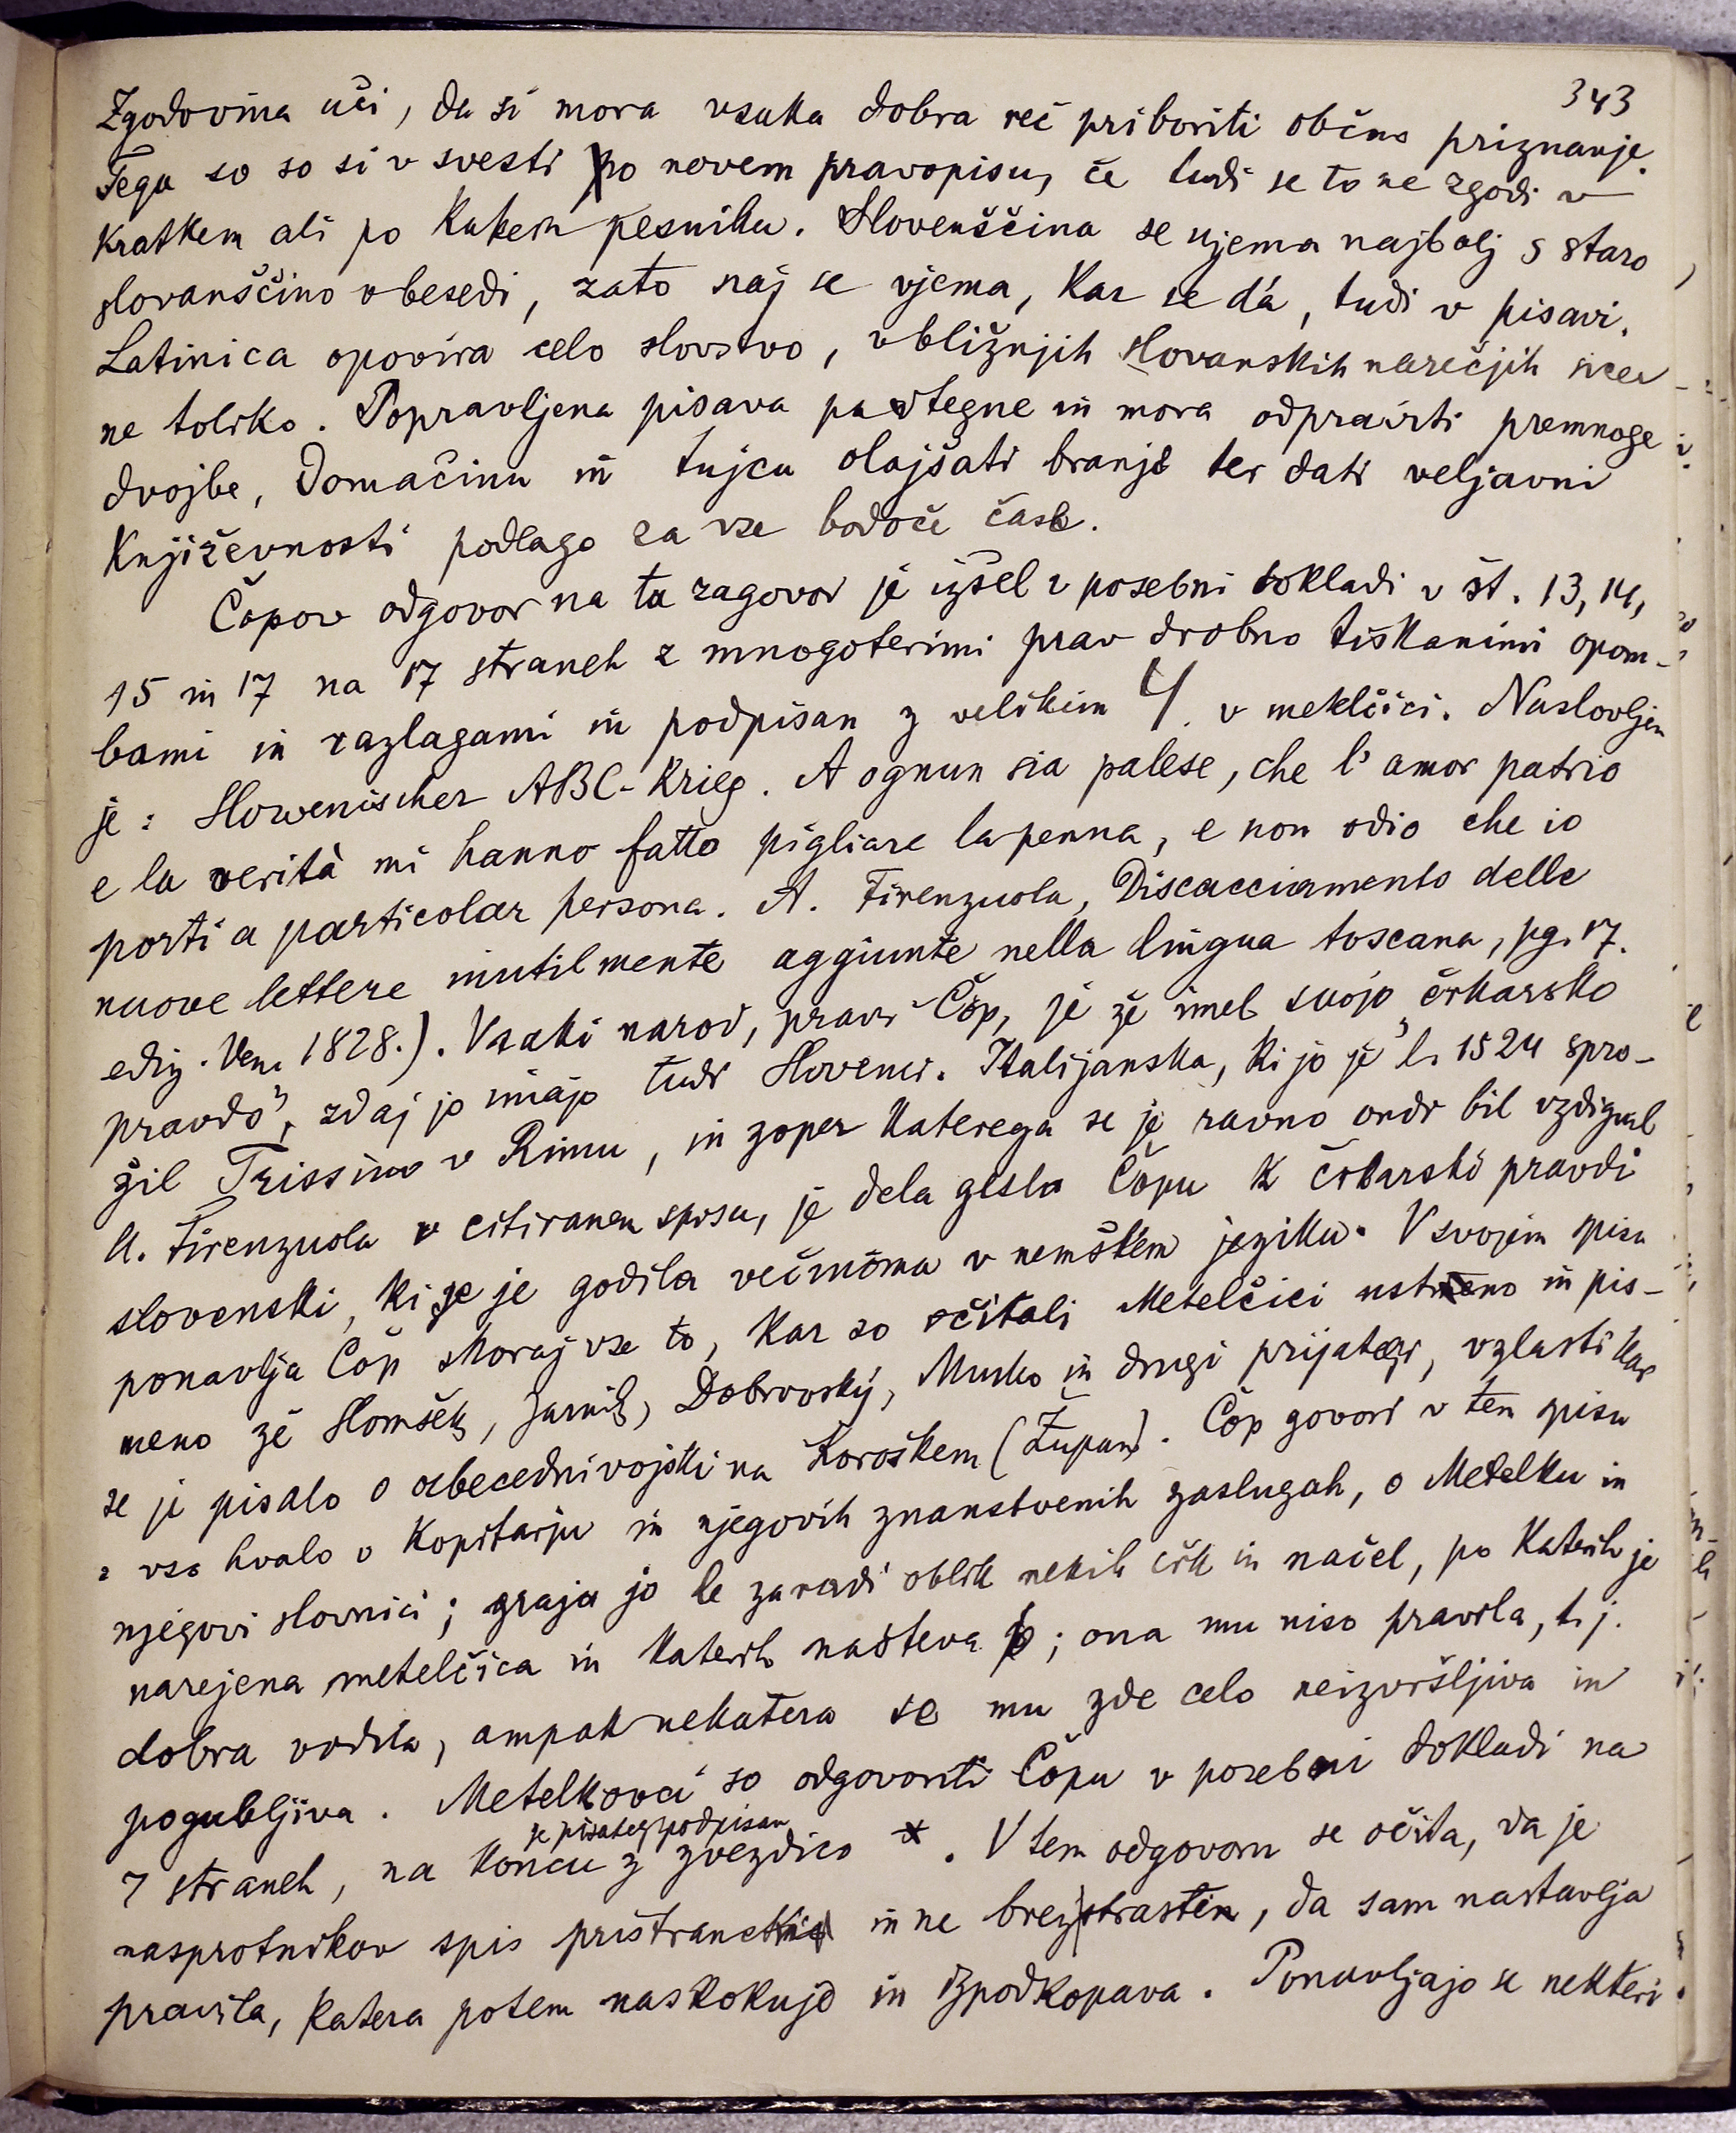 343
Zgodovina uči, da si mora vsaka dobra reč priboriti občno priznanje.
Tega so so si v svesti po novem pravopisu, če tudi se to ne zgodi v
kratkem ali po kakem pesniku. Slovenščina se ujema najbolj s staro
slovanščino v besedi, zato naj se vjema, kar se dá, tudi v pisavi.
Latinica opovira celo slovstvo, v bližnjih slovanskih narečjih sicer
ne toliko. Popravljena pisava pa utegne in mora odpraviti premnoge
dvojbe, domačinu in tujcu olajšati branje ter dati veljavni
književnosti podlago za vse bodoče čase.
Čopov odgovor na ta zagovor je izšel v posebni dokladi v št. 13, 14,
15 in 17 na 17 straneh z mnogoterimi prav drobno tiskanimi opom-
bami in razlagami in podpisan z velikim Ч. v meklčici. Naslovljen
je: Slowenischer ABC-Krieg. A ognun sia palese, che l'amor patrio
e la verità mi hanno fatto pigliare la penna, e non odio che io
porti a particolar persona. A. Firenzuola, Discacciamento delle
nuove lettere inutilmente aggiunte nella lingua toscana, pg. 17.
ediz. Ven. 1828.). Vsaki narod, pravi Čop, je že imel svojo „črkarsko
pravdo", zdaj jo imajo tudi Slovenci. Italijanska, ki jo je l. 1524 spro-
žil Trissino v Rimu, in zoper katerega se je ravno ondi bil vzdignil
A. Firenzuola v citiranem spisu, je dela gesla Čopu k črkarski pravdi
slovenski, ki se je godila večinoma v nemškem jeziku. V svojem spisu
ponavlja Čop skoraj vse to, kar so očitali Metelčici ustmeno in pis-
meno že Slomšek, Jarnik, Dobrovský, Murko in drugi prijatelji, vzlasti kar
se je pisalo o abecedni vojski na Koroškem (Župan). Čop govori v tem spisu
z vso hvalo o Kopitarju in njegovih znanstvenih zaslugah, o Metelku in
njegovi slovnici; graja jo le zaradi oblik nekih črk in načel, po katerih je
narejena metelčica in katerih našteva 6; ona mu niso pravila, t. j.
dobra vodila, ampak nekatera se mu zde celo neizvršljiva in
pogubljiva. Metelkovci so odgovorili Čopu v posebni dokladi na
7 straneh, na koncu je pisatelj podpisan z zvezdico *. V tem odgovoru se očita, da je
nasprotnikov spis pristranski in ne brezstrasten, da sam nastavlja
pravila, katera potem naskokuje in izpodkopava. Ponavljajo se nekteri